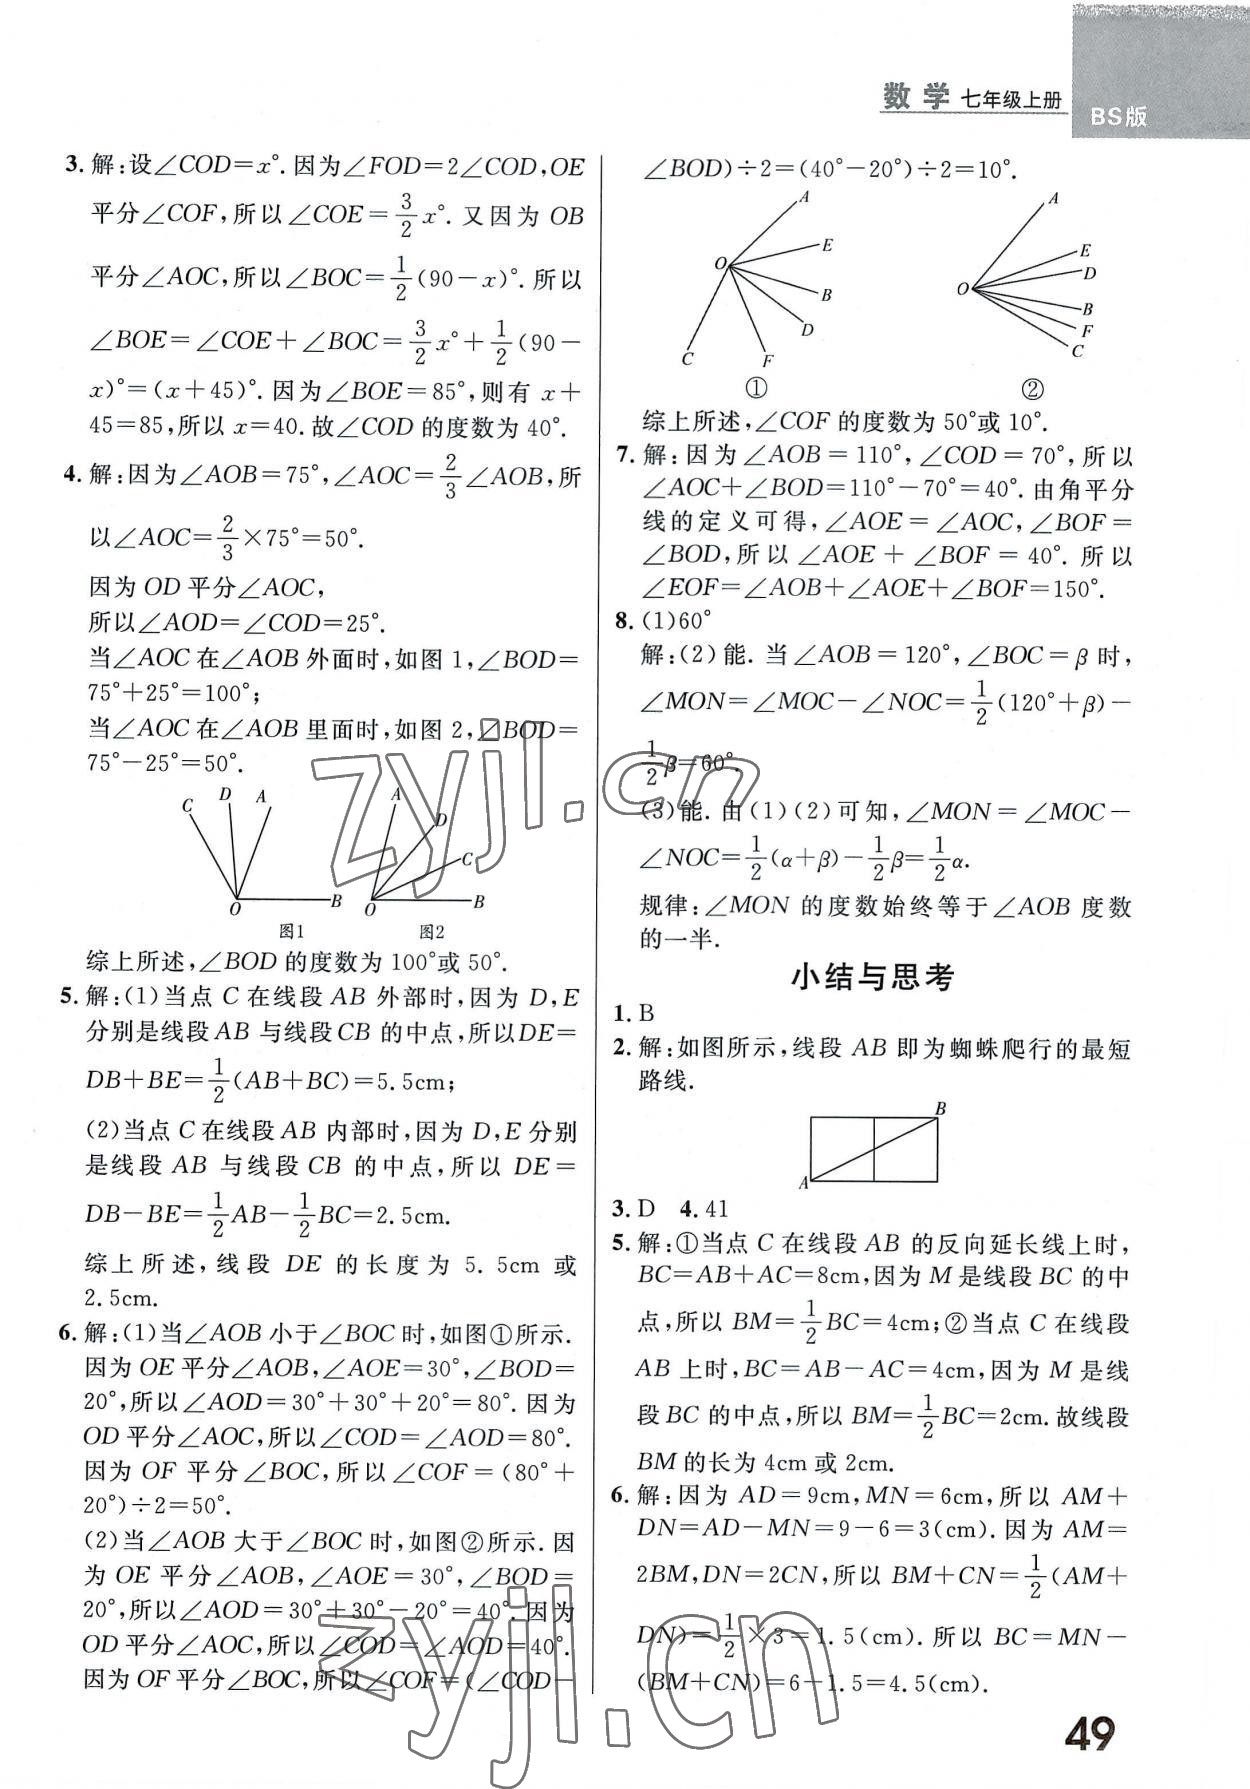 数学 七年级上册
BS版
3. 解:设∠COD=x°. 因为∠FOD=2∠COD,OE
平分∠COF,所以∠COE=3/2 x°. 又因为 OB
平分∠AOC,所以∠BOC=1/2(90-x)°. 所以
∠BOE=∠COE+∠BOC=3/2 x°+1/2(90-
x)°=(x+45)°. 因为∠BOE=85°,则有 x+
45=85,所以 x=40. 故∠COD 的度数为 40°.
4. 解:因为∠AOB=75°,∠AOC=2/3∠AOB,所
以∠AOC=2/3×75°=50°.
因为 OD 平分∠AOC,
所以∠AOD=∠COD=25°.
当∠AOC 在∠AOB 外面时,如图 1,∠BOD=
75°+25°=100°;
当∠AOC 在∠AOB 里面时,如图 2,∠BOD=
75°-25°=50°.
C D A O B
图1
A D C O B
图2
综上所述,∠BOD 的度数为 100°或 50°.
5. 解:(1)当点 C 在线段 AB 外部时,因为 D,E
分别是线段 AB 与线段 CB 的中点,所以 DE=
DB+BE=1/2(AB+BC)=5.5cm;
(2)当点 C 在线段 AB 内部时,因为 D,E 分别
是线段 AB 与线段 CB 的中点,所以 DE=
DB-BE=1/2AB-1/2BC=2.5cm.
综上所述,线段 DE 的长度为 5.5cm 或
2.5cm.
6. 解:(1)当∠AOB 小于∠BOC 时,如图①所示.
因为 OE 平分∠AOB,∠AOE=30°,∠BOD=
20°,所以∠AOD=30°+30°+20°=80°. 因为
OD 平分∠AOC,所以∠COD=∠AOD=80°.
因为 OF 平分∠BOC,所以∠COF=(80°+
20°)÷2=50°.
(2)当∠AOB 大于∠BOC 时,如图②所示. 因
为 OE 平分∠AOB,∠AOE=30°,∠BOD=
20°,所以∠AOD=30°+30°-20°=40°. 因为
OD 平分∠AOC,所以∠COD=∠AOD=40°.
因为 OF 平分∠BOC,所以∠COF=(∠COD-
∠BOD)÷2=(40°-20°)÷2=10°.
A E O B D F C
①
A E D O B F C
②
综上所述,∠COF 的度数为 50°或 10°.
7. 解:因为∠AOB=110°,∠COD=70°,所以
∠AOC+∠BOD=110°-70°=40°. 由角平分
线的定义可得,∠AOE=∠AOC,∠BOF=
∠BOD,所以∠AOE+∠BOF=40°. 所以
∠EOF=∠AOB+∠AOE+∠BOF=150°.
8. (1)60°
解:(2)能. 当∠AOB=120°,∠BOC=β 时,
∠MON=∠MOC-∠NOC=1/2(120°+β)-
1/2β=60°.
(3)能. 由(1)(2)可知,∠MON=∠MOC-
∠NOC=1/2(α+β)-1/2β=1/2α.
规律:∠MON 的度数始终等于∠AOB 度数
的一半.
小结与思考
1. B
2. 解:如图所示,线段 AB 即为蜘蛛爬行的最短
路线.
B
A
3. D 4. 41
5. 解:①当点 C 在线段 AB 的反向延长线上时,
BC=AB+AC=8cm,因为 M 是线段 BC 的中
点,所以 BM=1/2BC=4cm;②当点 C 在线段
AB 上时,BC=AB-AC=4cm,因为 M 是线
段 BC 的中点,所以 BM=1/2BC=2cm. 故线段
BM 的长为 4cm 或 2cm.
6. 解:因为 AD=9cm,MN=6cm,所以 AM+
DN=AD-MN=9-6=3(cm). 因为 AM=
2BM,DN=2CN,所以 BM+CN=1/2(AM+
DN)=1/2×3=1.5(cm). 所以 BC=MN-
(BM+CN)=6-1.5=4.5(cm).
49
zyjl.cn
zyjl.cn